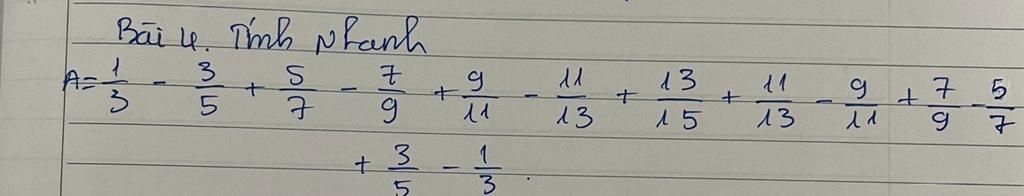 Bài 4. Tính nhanh
A = 1/3 - 3/5 + 5/7 - 7/9 + 9/11 - 11/13 + 13/15 + 11/13 - 9/11 + 7/9 - 5/7
+ 3/5 - 1/3.